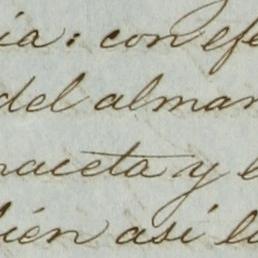 ia: con efe
del alman
naceta y e
bién asi la